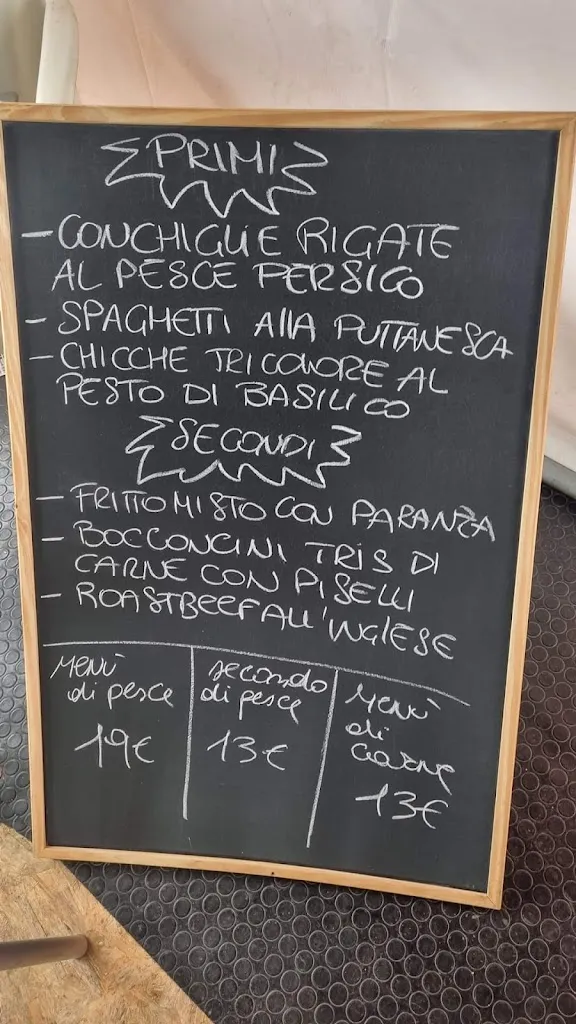 PRIMI
- CONCHIGLIE RIGATE
AL PESCE PERSICO
- SPAGHETTI AllA PUTTANESCA
- CHICCHE TRICOLORE AL
PESTO DI BASILICO
SECONDI
- FRITTO MISTO CON PARANZA
- BOCCONCINI TRIS DI
CARNE CON PISELLI
- ROASTBEEF ALL'INGLESE
MENÙ
di pesce
19€
secondo
di pesce
13€
MENÙ
di
carne
13€